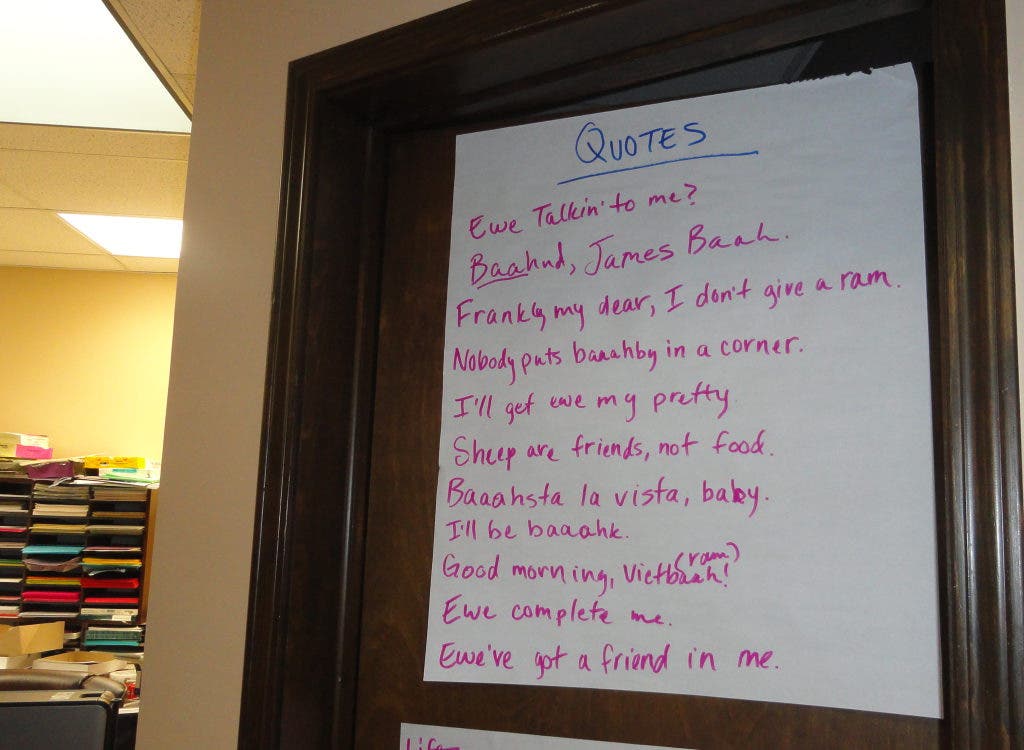 QUOTES
Ewe Talkin' to me?
Baahnd, James Baah.
Frankly my dear, I don't give a ram.
Nobody puts baaahby in a corner.
I'll get ewe my pretty
Sheep are friends, not food.
Baaahsta la vista, baby.
I'll be baaahk.
Good morning, Vietbaah! (ram)
Ewe complete me.
Ewe've got a friend in me.